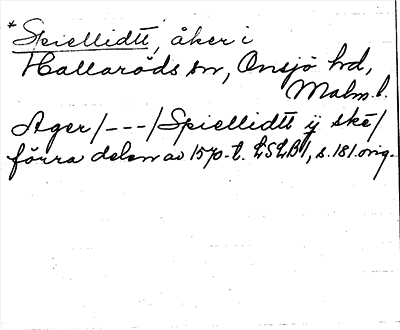 *Spiellidtt, åker i
Hallaröds sn, Onsjö hd,
Malm. l.
Ager/---/Spiellidtt ij ske/
förra delen av 1570-t. LSLB1, s. 181. orig.